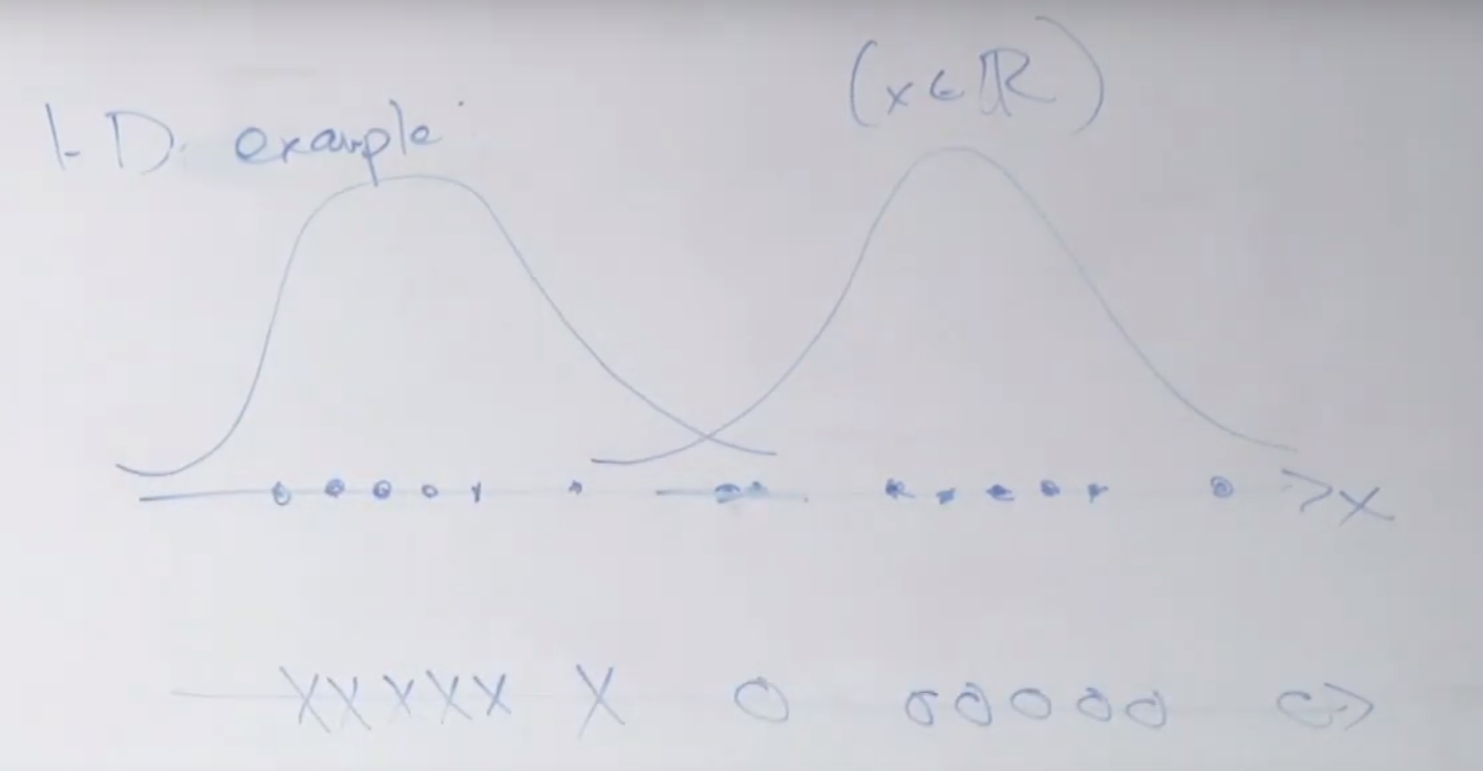 1-D example
(x∈ℝ)
x
XXXXX X O OOOOO O